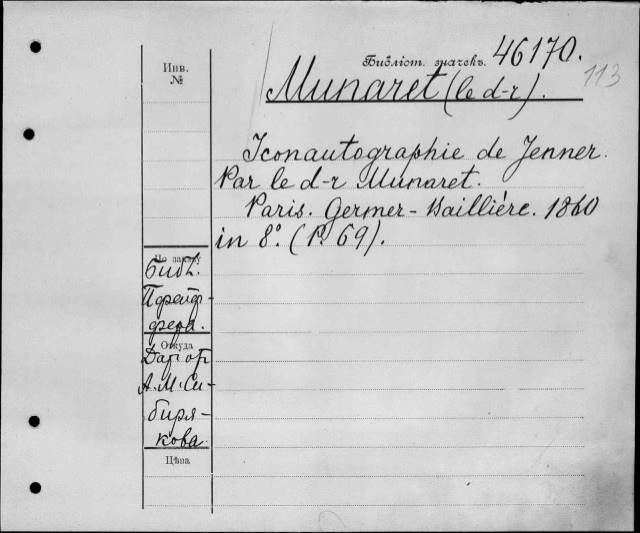 Библіот. значекъ. 46170.
113
Инв.
№
Munaret (le d-r).
Iconautographie de Jenner.
Par le d-r Munaret.
Paris. Germer-Baillière. 1860
in 8°. (P. 69).
По заказу
Библ.
Пфейф-
фера.
Откуда
Дар от
А. М. Си-
биря-
кова.
Цѣна